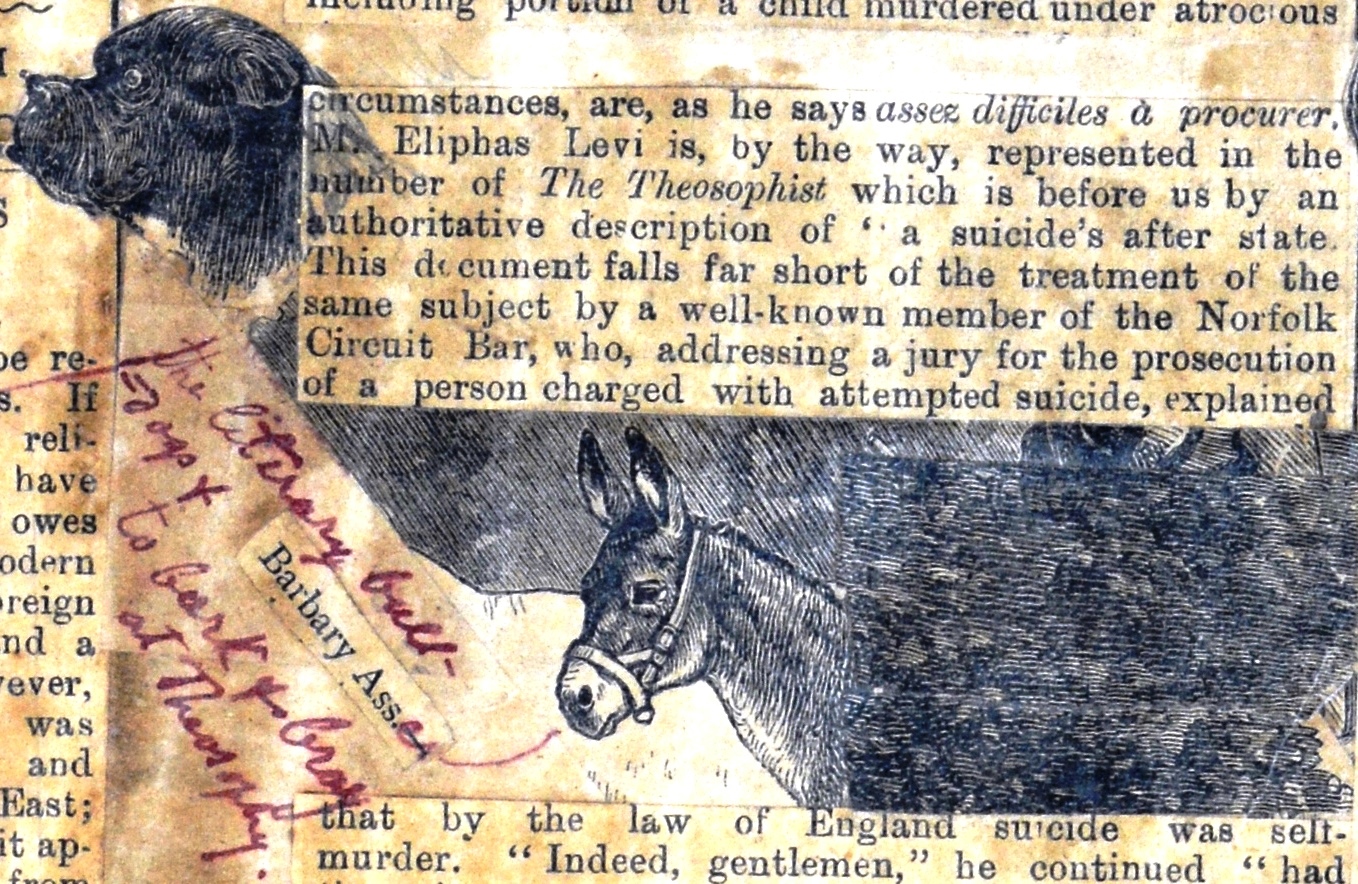 M
S
be re-
s. If
reli-
have
owes
odern
oreign
nd a
vever,
was
and
East;
it ap-
from
including portion of a child murdered under atrocious
circumstances, are, as he says assez difficiles à procurer.
M. Eliphas Levi is, by the way, represented in the
number of The Theosophist which is before us by an
authoritative description of “ a suicide's after state.
This document falls far short of the treatment of the
same subject by a well-known member of the Norfolk
Circuit Bar, who, addressing a jury for the prosecution
of a person charged with attempted suicide, explained
the literary bull-
dogs &
Barbary Ass.es
to bark & bray
at Theosophy.
that by the law of England suicide was self-
murder. “Indeed, gentlemen,” he continued “had